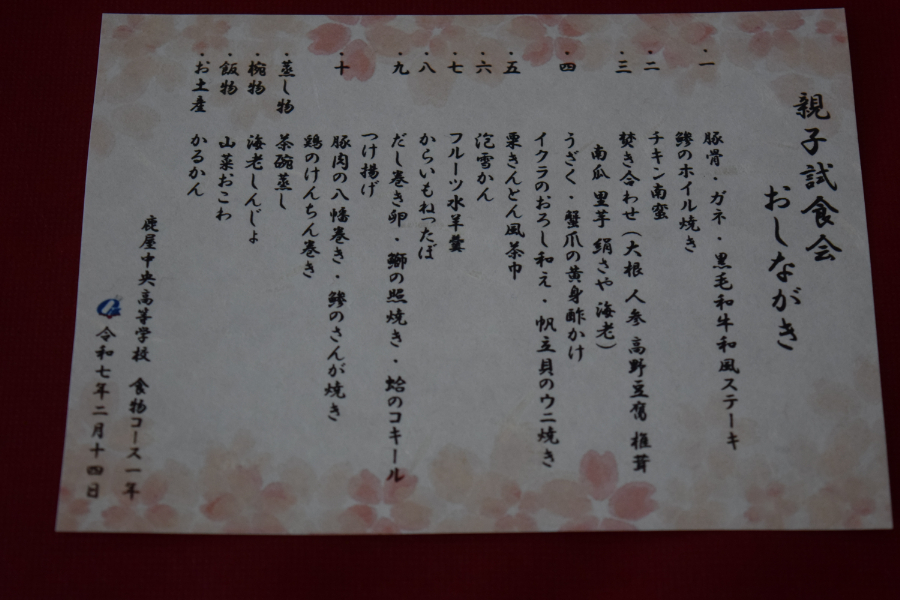 親子試食会
おしながき
・一 豚骨・ガネ・黒毛和牛和風ステーキ
鯵のホイル焼き
・二 チキン南蛮
・三 焚き合わせ(大根 人参 高野豆腐 椎茸
南瓜 里芋 絹さや 海老)
・四 うざく・蟹爪の黄身酢かけ
イクラのおろし和え・帆立貝のウニ焼き
・五 栗きんとん風茶巾
・六 泡雪かん
・七 フルーツ水羊羹
・八 からいもねったぼ
・九 だし巻き卵・鰤の照焼き・蛤のコキール
つけ揚げ
・十 豚肉の八幡巻き・鯵のさんが焼き
鶏のけんちん巻き
・蒸し物 茶碗蒸し
・椀物 海老しんじょ
・飯物 山菜おこわ
・お土産 かるかん
鹿屋中央高等学校 食物コース一年
令和七年二月十四日